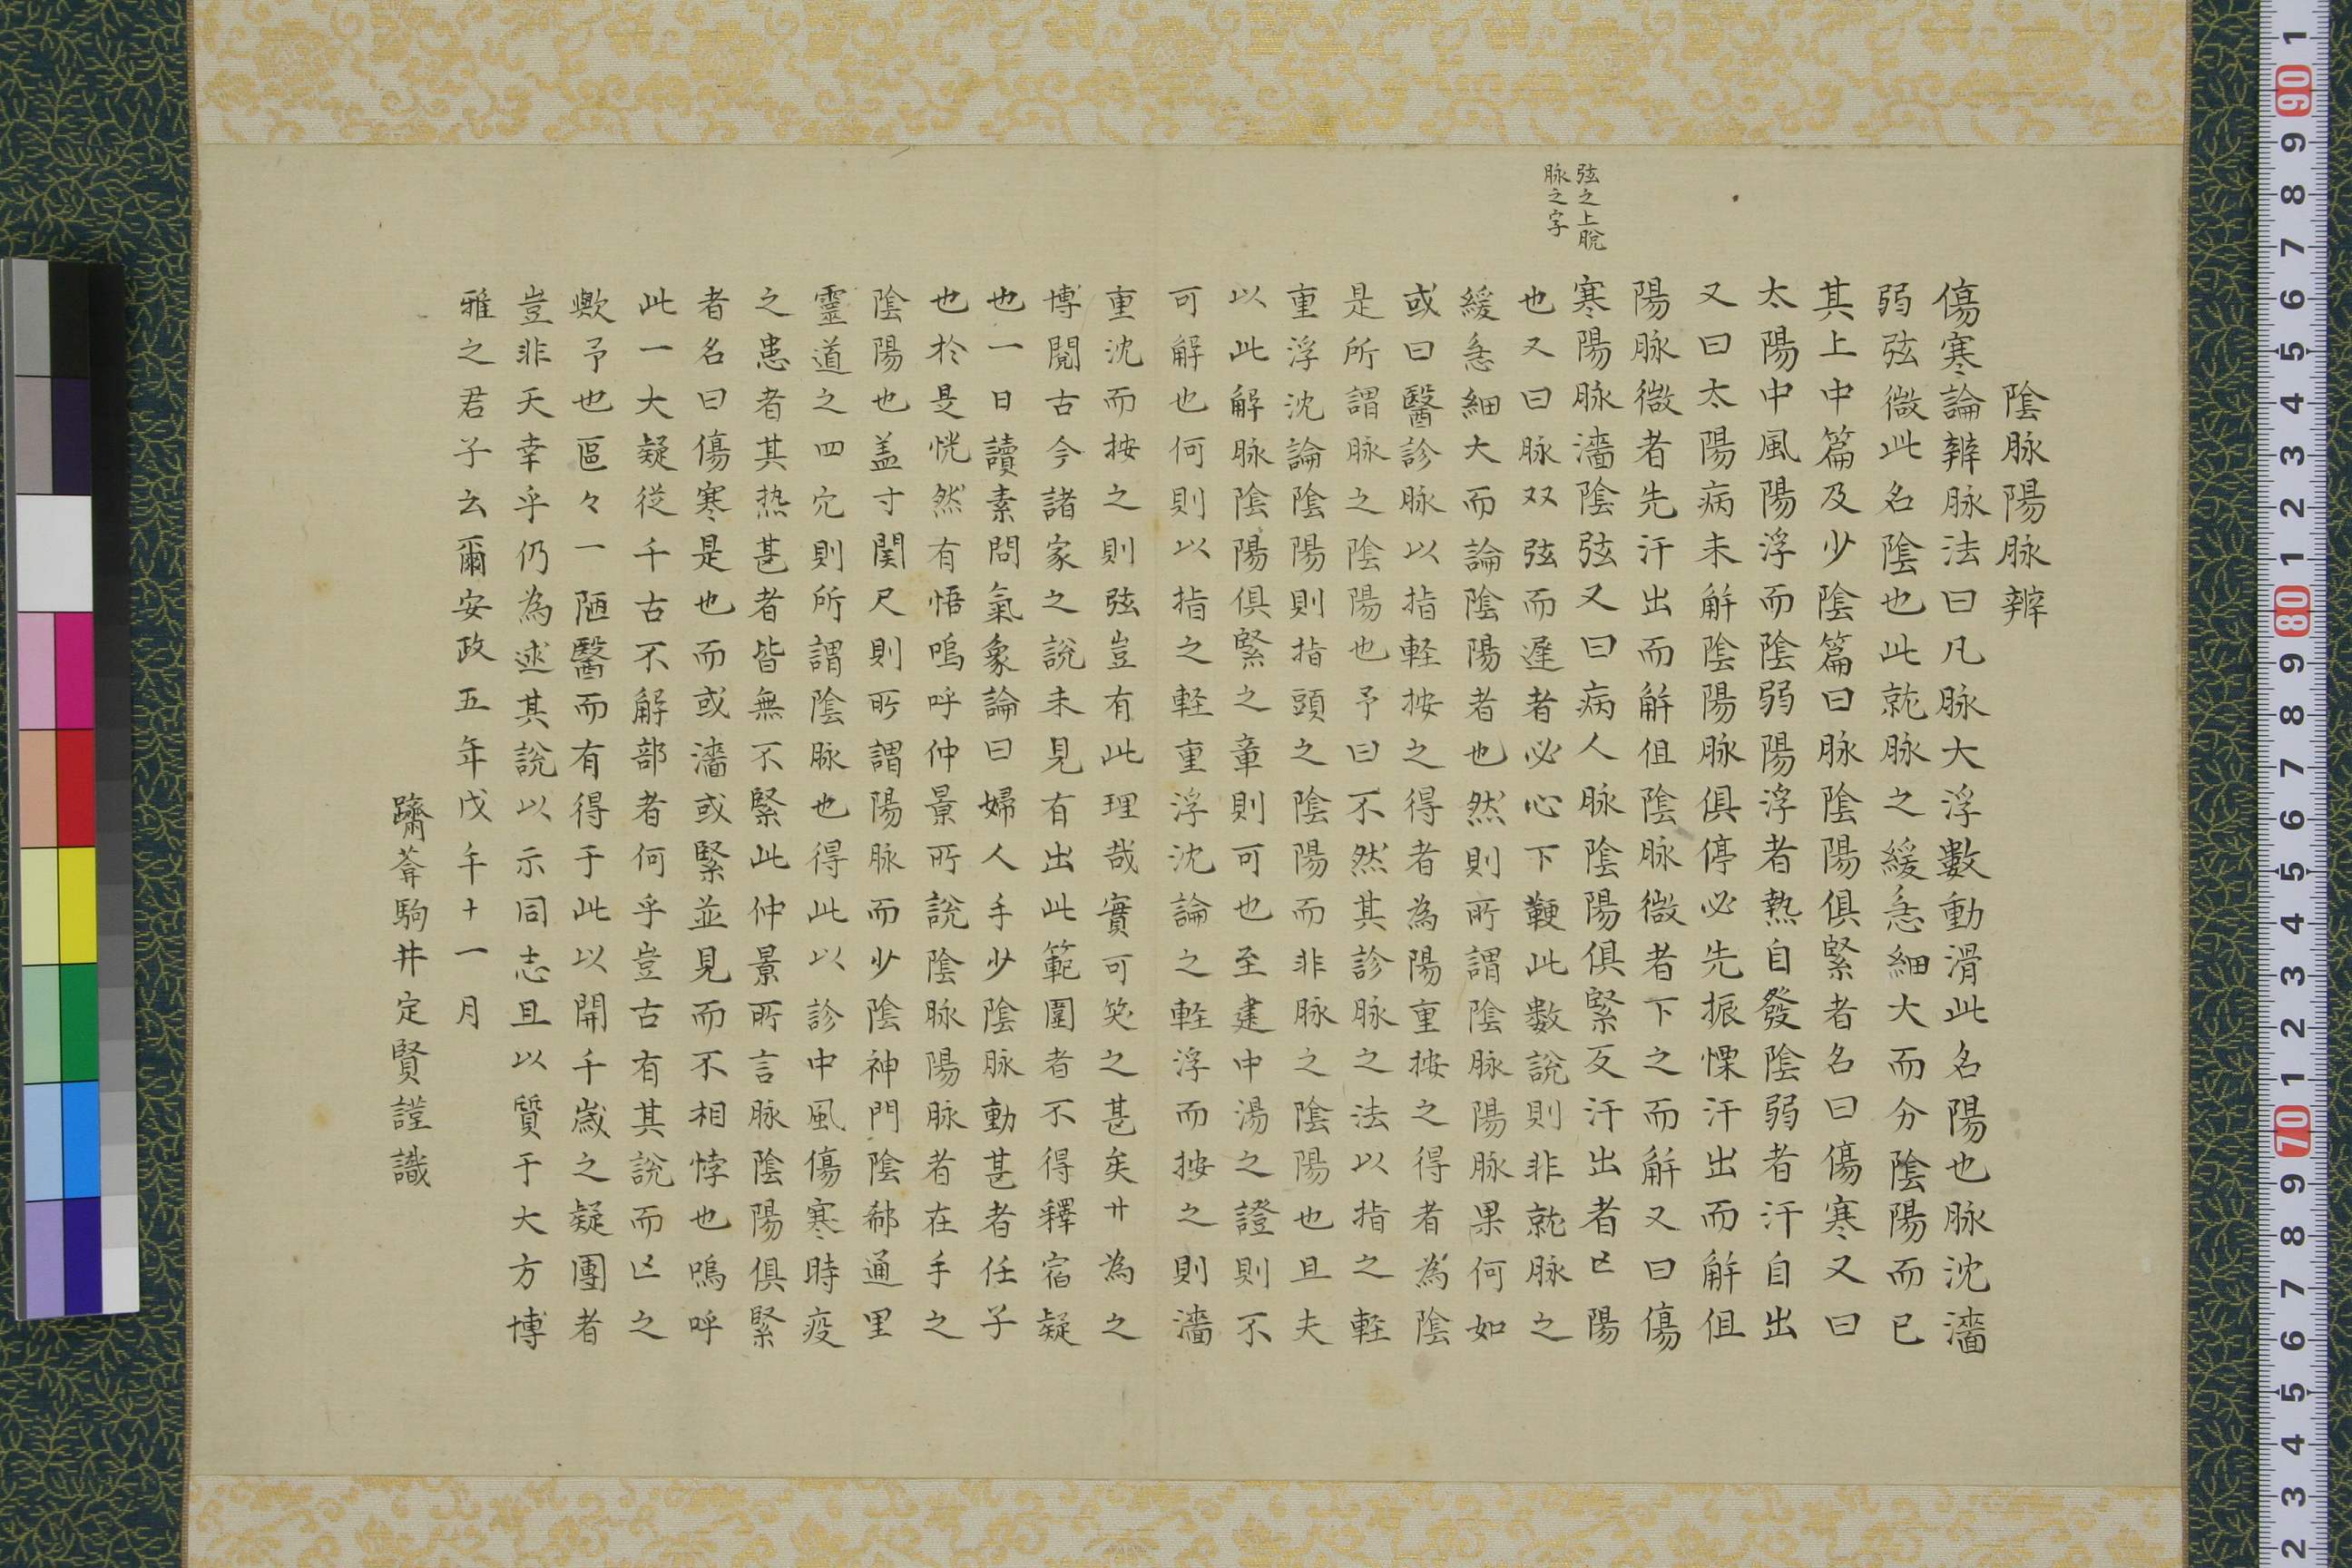 陰脉陽脉辧
傷寒論辧脉法曰凡脉大浮數動滑此名陽也脉沈濇
弱弦微此名陰也此就脉之緩急細大而分陰陽而已
其上中篇及少陰篇曰脉陰陽俱緊者名曰傷寒又曰
太陽中風陽浮而陰弱陽浮者熱自發陰弱者汗自出
又曰太陽病未解陰陽脉俱停必先振慄汗出而解但
陽脉微者先汗出而解但陰脉微者下之而解又曰傷
寒陽脉濇陰弦又曰病人脉陰陽俱緊反汗出者亡陽
弦之上脫
脉之字
也又曰脉双弦而遲者必心下鞕此數說則非就脉之
緩急細大而論陰陽者也然則所謂陰脉陽脉果何如
或曰醫診脉以指軽按之得者為陽重按之得者為陰
是所謂脉之陰陽也予曰不然其診脉之法以指之軽
重浮沈論陰陽則指頭之陰陽而非脉之陰陽也且夫
以此解脉陰陽俱緊之章則可也至建中湯之證則不
可解也何則以指之軽重浮沈論之軽浮而按之則濇
重沈而按之則弦豈有此理哉實可笑之甚矣廾為之
博閲古今諸家之說未見有出此範圍者不得釋宿疑
也一日讀素問氣象論曰婦人手少陰脉動甚者任子
也於是恍然有悟嗚呼仲景所說陰脉陽脉者在手之
陰陽也盖寸関尺則所謂陽脉而少陰神門陰郄通里
靈道之四穴則所謂陰脉也得此以診中風傷寒時疫
之患者其热甚者皆無不緊此仲景所言脉陰陽俱緊
者名曰傷寒是也而或濇或緊並見而不相悖也嗚呼
此一大疑從千古不解部者何乎豈古有其說而亡之
歟予也區々一陋醫而有得于此以開千歲之疑團者
豈非天幸乎仍為述其說以示同志且以質于大方博
雅之君子云爾安政五年戊午十一月
躋葊駒井定賢謹識